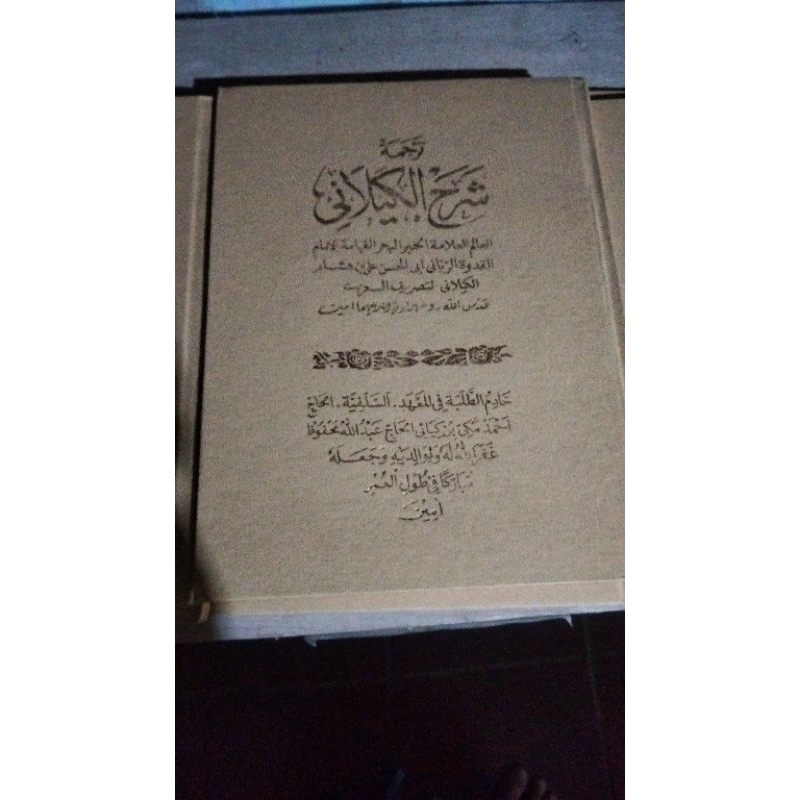 ترجمة
شَرْحُ الْكَيْلَانِي
العالم العلامة الحبر البحر الفهامة الإمام
القدوة الرباني أبى الحسن على بن هشام
الكيلانى لتصريف
قدس الله
خَادِمُ الطَّلَبَةِ فِى الْمَعْهَدِ. السَّلَفِيَّةِ. الحَاجّ
أَحْمَدْ مَكِّى بن كياهى الحَاجّ عَبْدُ اللهْ مَحْفُوظْ
غَفَرَ اللهُ لَهُ وَلِوَالِدَيْهِ وَجَعَلَهُ
مُبَارَكًا فِى طُوْلِ الْعُمْرِ
أمِيْنَ